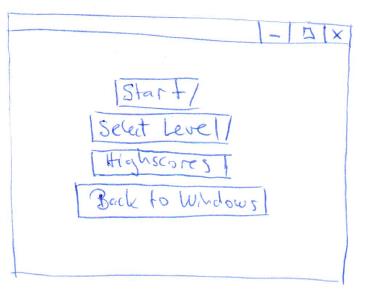 Start
Select Level
Highscores
Back to Windows